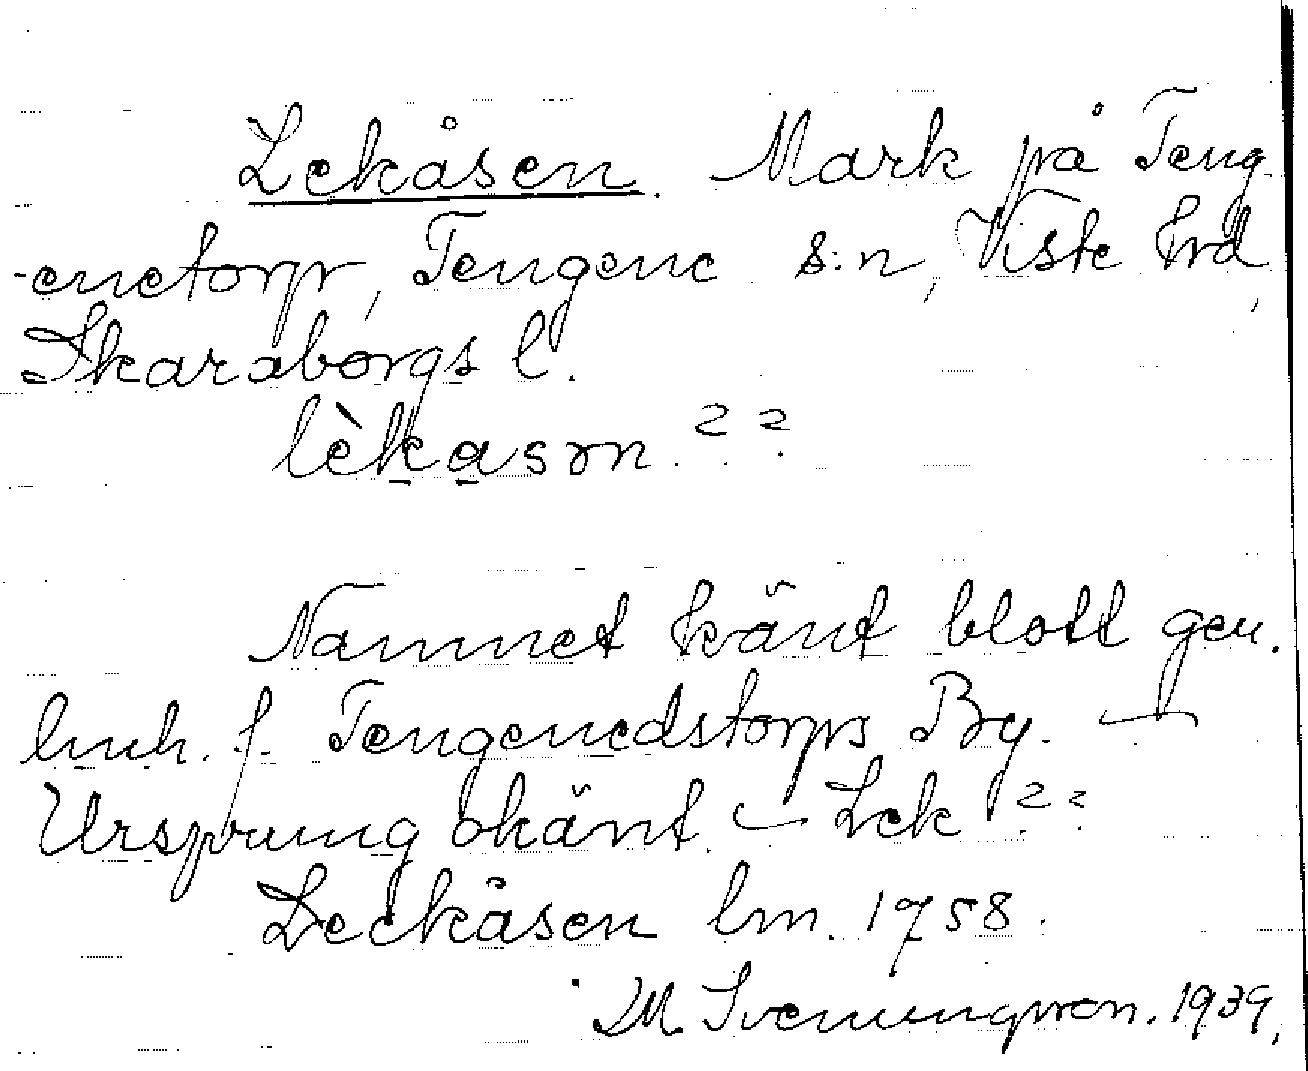 Lekåsen. Mark på Teng-
-enetorp, Tengene s:n, Viste hrd,
Skaraborgs l.
lèkasrn. ? ?
Namnet känt blott gen.
lmh. f. Tengenedstorps By. —
Ursprung okänt. — Lek ? ?
Leckåsen lm. 1758.
M. Svenungsson. 1939,